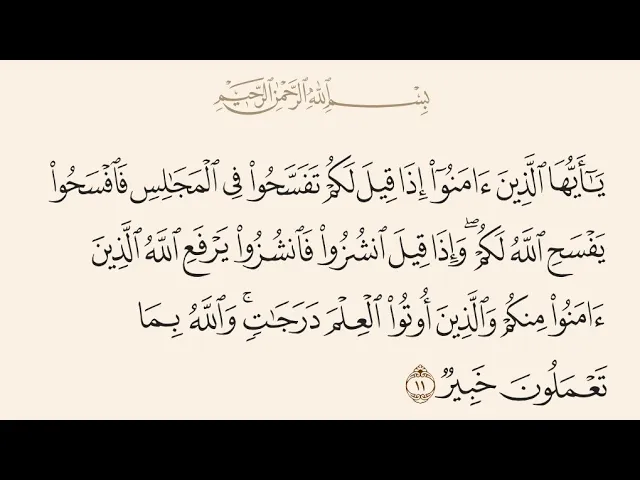 بِسْمِ ٱللَّهِ ٱلرَّحْمَٰنِ ٱلرَّحِيمِ
يَـٰٓأَيُّهَا ٱلَّذِينَ ءَامَنُوٓا۟ إِذَا قِيلَ لَكُمْ تَفَسَّحُوا۟ فِى ٱلْمَجَـٰلِسِ فَٱفْسَحُوا۟
يَفْسَحِ ٱللَّهُ لَكُمْ ۖ وَإِذَا قِيلَ ٱنشُزُوا۟ فَٱنشُزُوا۟ يَرْفَعِ ٱللَّهُ ٱلَّذِينَ
ءَامَنُوا۟ مِنكُمْ وَٱلَّذِينَ أُوتُوا۟ ٱلْعِلْمَ دَرَجَـٰتٍ ۚ وَٱللَّهُ بِمَا
تَعْمَلُونَ خَبِيرٌ ١١